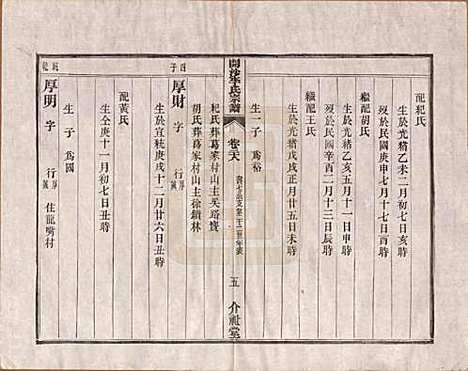 配杞氏
生於光緒乙未二月初七日亥時
歿於民國庚申七月十七日酉時
繼配胡氏
生於光緒乙亥五月十一日申時
歿於民國辛酉二月十三日辰時
繼王氏
生於光緒戊戌正月廿五日未時
生一子 為裕
李氏宗譜
卷六
五
介祉堂
杞氏葬葛家村山主吳路寶
胡氏葬葛家村山主徐鎖林
四子
厚財 字 行
生於宣統庚戌十二月廿六日丑時
生 子 為國
厚明 字 行 住龍嘴村
配黃氏
生仝庚十一月初七日丑時